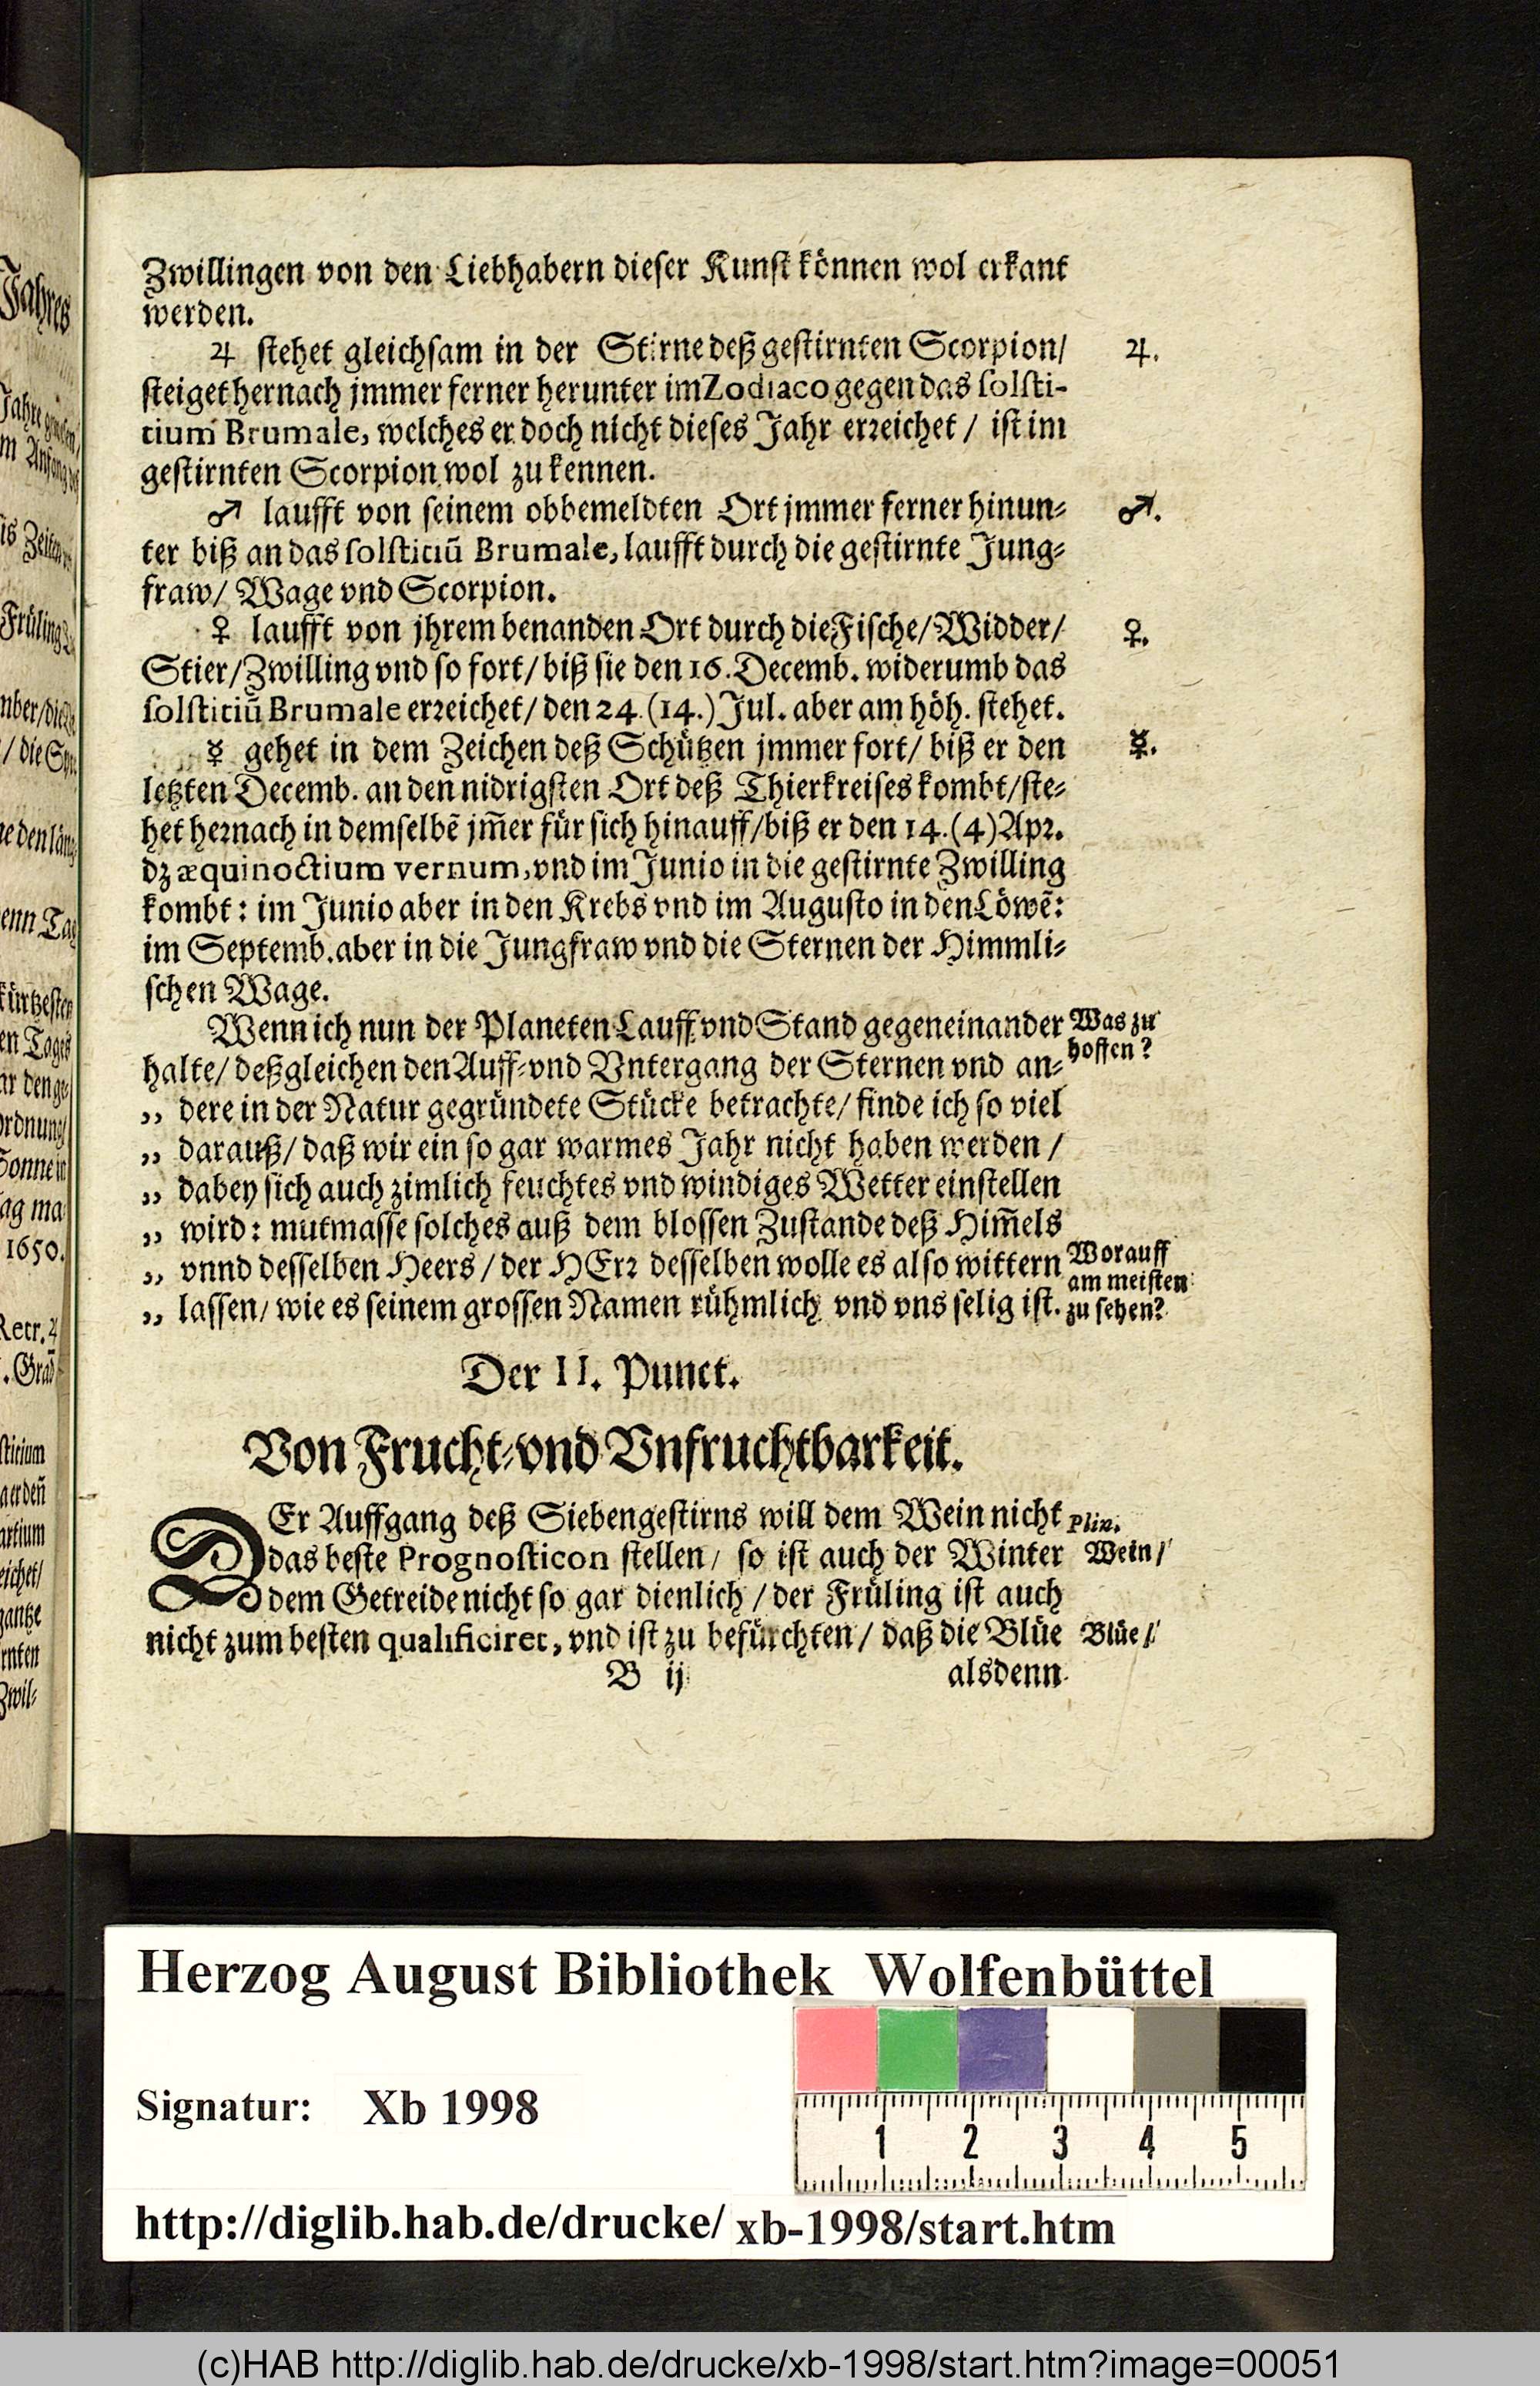 Zwillingen von den Liebhabern dieser Kunst können wol erkant
werden.
♃ stehet gleichsam in der Stirne deß gestirnten Scorpion/
♃.
steiget hernach jmmer ferner herunter im Zodiaco gegen das solsti-
tium Brumale, welches er doch nicht dieses Jahr erreichet / ist im
gestirnten Scorpion wol zu kennen.
♂ laufft von seinem obbemeldten Ort jmmer ferner hinun-
♂.
ter biß an das solstitiū Brumale, laufft durch die gestirnte Jung-
fraw/ Wage vnd Scorpion.
♀ laufft von jhrem benanden Ort durch die Fische/ Widder/
♀.
Stier/ Zwilling vnd so fort/ biß sie den 16. Decemb. widerumb das
solstitiū Brumale erreichet/ den 24. (14.) Jul. aber am höh. stehet.
☿ gehet in dem Zeichen deß Schützen jmmer fort/ biß er den
☿.
letzten Decemb. an den nidrigsten Ort deß Thierkreises kombt/ ste-
het hernach in demselbē jm̄er für sich hinauff/ biß er den 14. (4) Apr.
dz æquinoctium vernum, vnd im Junio in die gestirnte Zwilling
kombt: im Junio aber in den Krebs vnd im Augusto in den Löwē:
im Septemb. aber in die Jungfraw vnd die Sternen der Himmli-
schen Wage.
Wenn ich nun der Planeten Lauff vnd Stand gegeneinander
Was zu
hoffen?
halte/ deßgleichen den Auff- vnd Vntergang der Sternen vnd an-
„ dere in der Natur gegründete Stücke betrachte/ finde ich so viel
„ darauß/ daß wir ein so gar warmes Jahr nicht haben werden /
„ dabey sich auch zimlich feuchtes vnd windiges Wetter einstellen
„ wird: mutmasse solches auß dem blossen Zustande deß Him̄els
„ vnnd desselben Heers / der HErr desselben wolle es also wittern
Worauff
am meisten
zu sehen?
„ lassen/ wie es seinem grossen Namen rühmlich vnd vns selig ist.
Der II. Punct.
Von Frucht- vnd Vnfruchtbarkeit.
DEr Auffgang deß Siebengestirns will dem Wein nicht
Plin.
das beste Prognosticon stellen/ so ist auch der Winter
Wein /
dem Getreide nicht so gar dienlich / der Früling ist auch
nicht zum besten qualificiret, vnd ist zu befürchten / daß die Blüe
Blüe /
B ij
alsdenn
Herzog August Bibliothek Wolfenbüttel
Signatur: Xb 1998
1 2 3 4 5
http://diglib.hab.de/drucke/ xb-1998/start.htm
(c)HAB http://diglib.hab.de/drucke/xb-1998/start.htm?image=00051